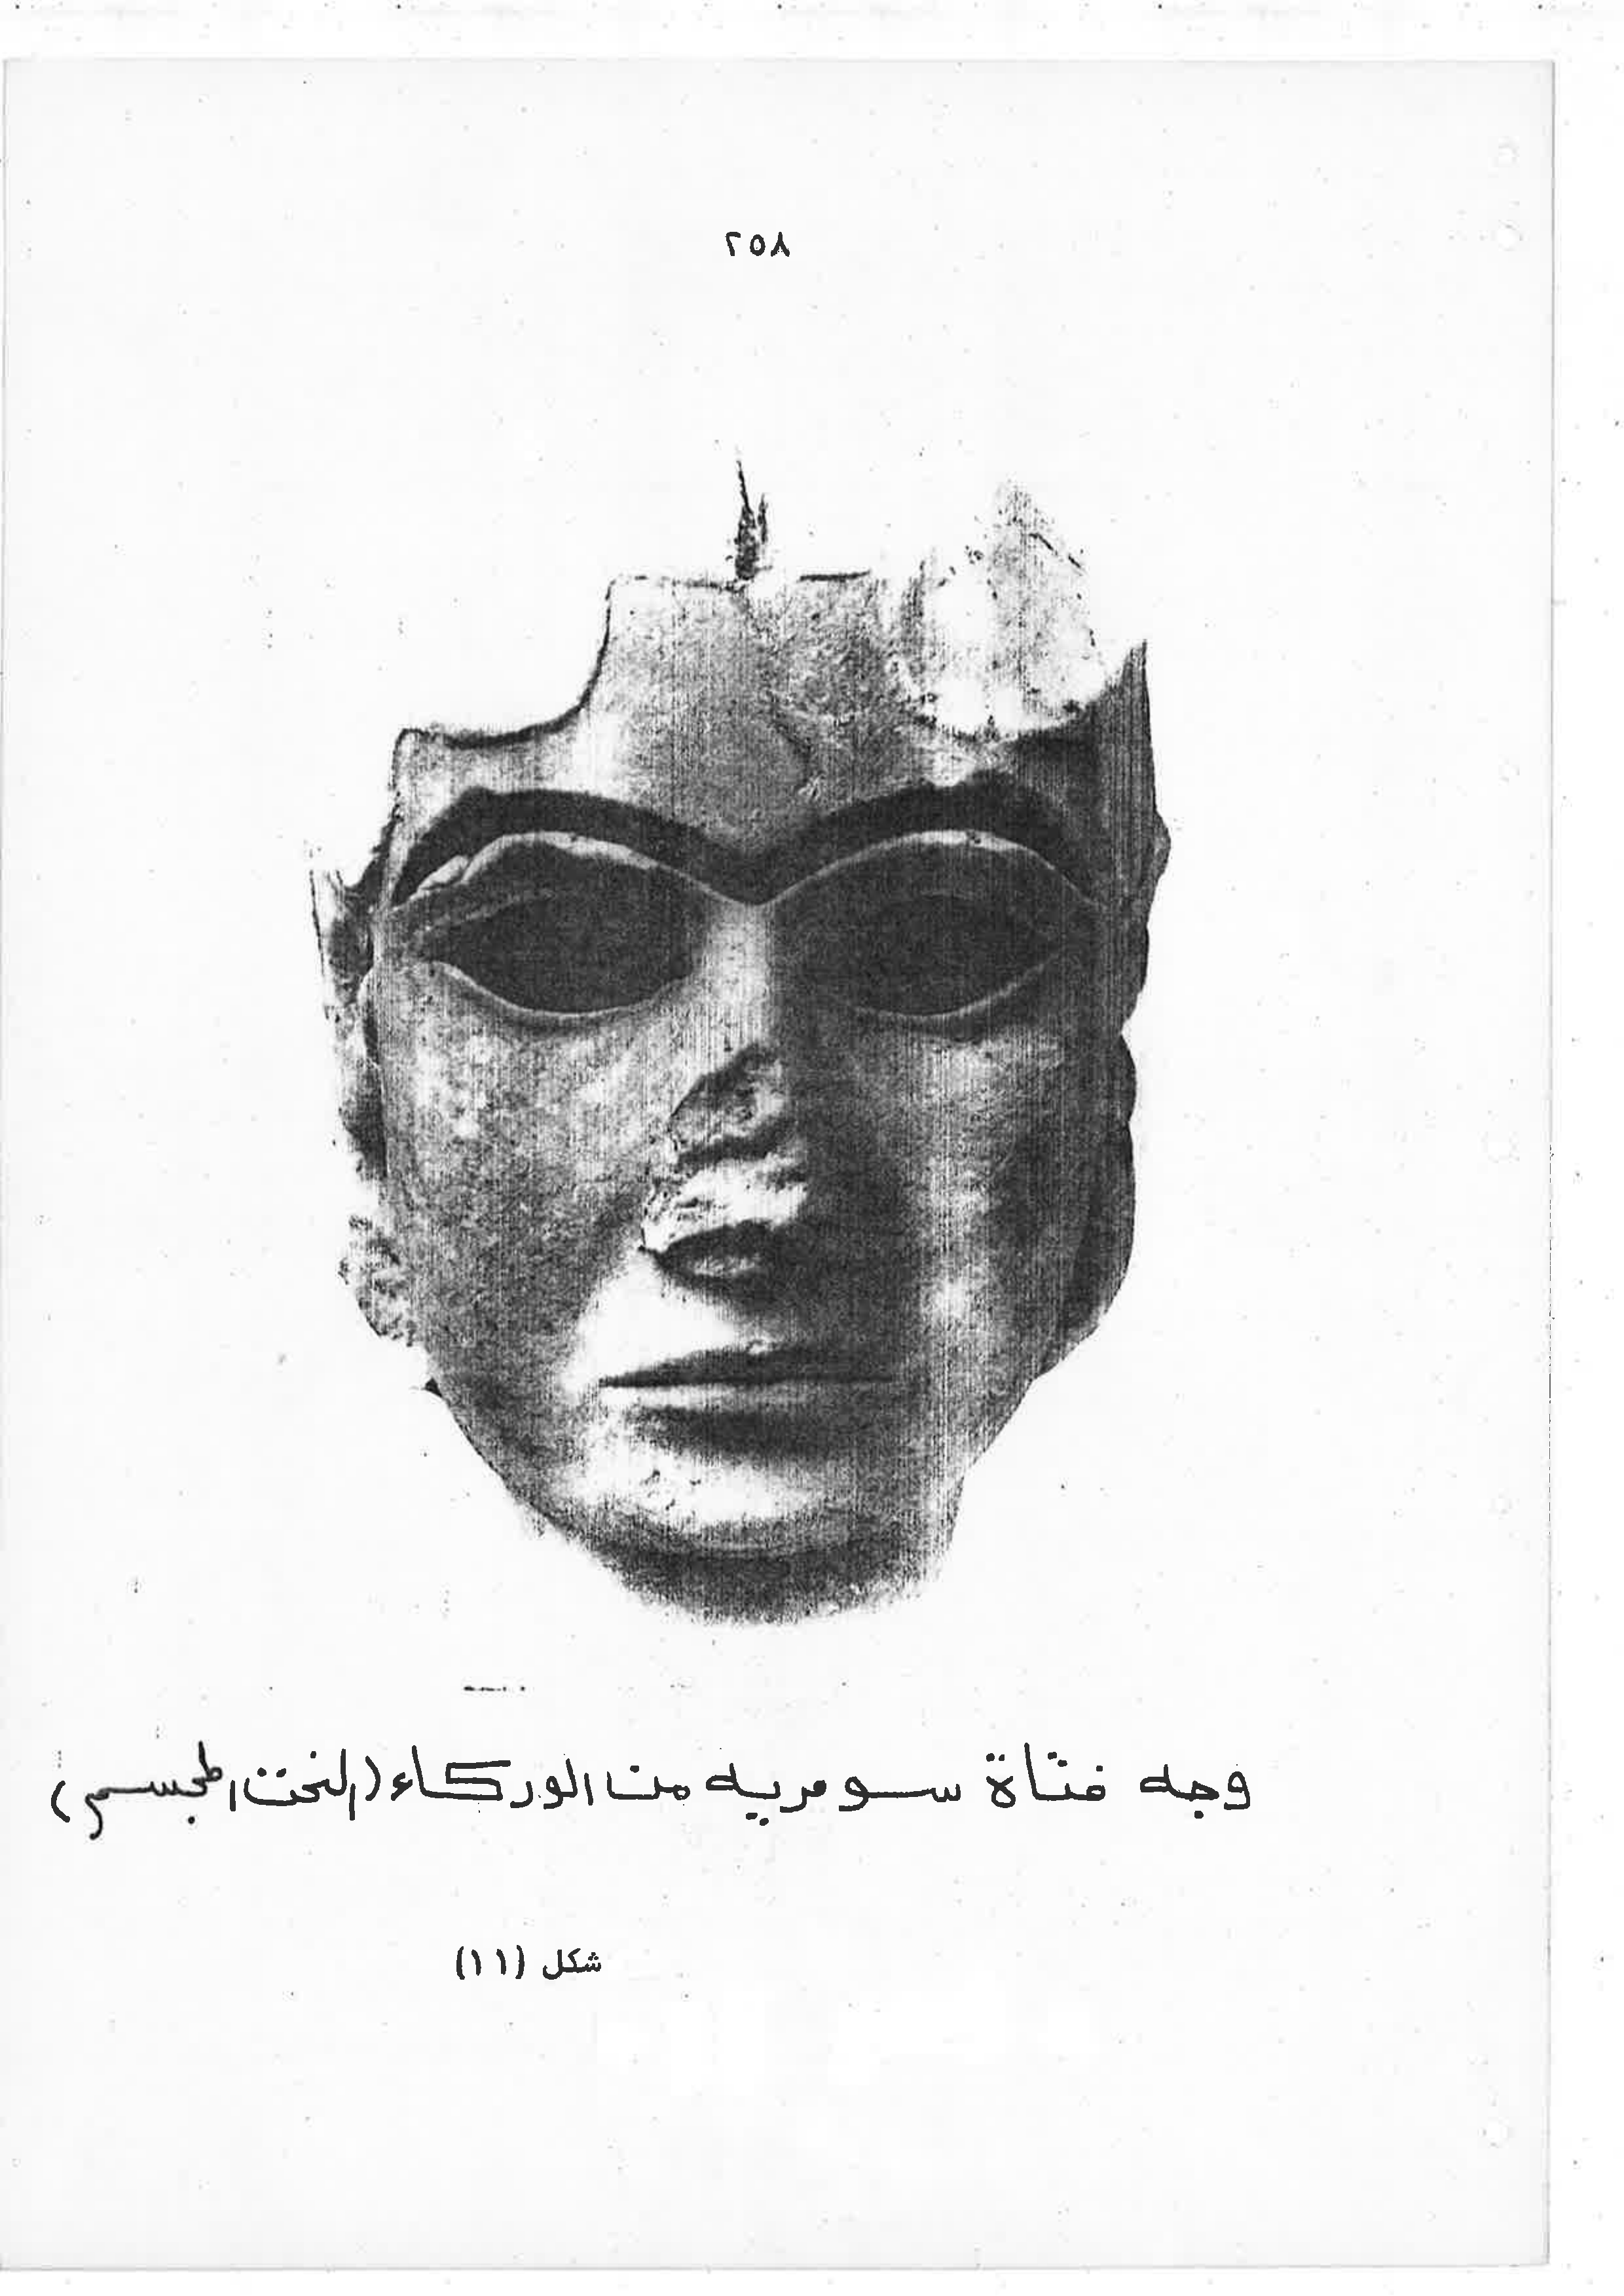 ٢٥٨
وجه فتاة سومريه من الوركاء (النحت المجسم)
شكل (١١)